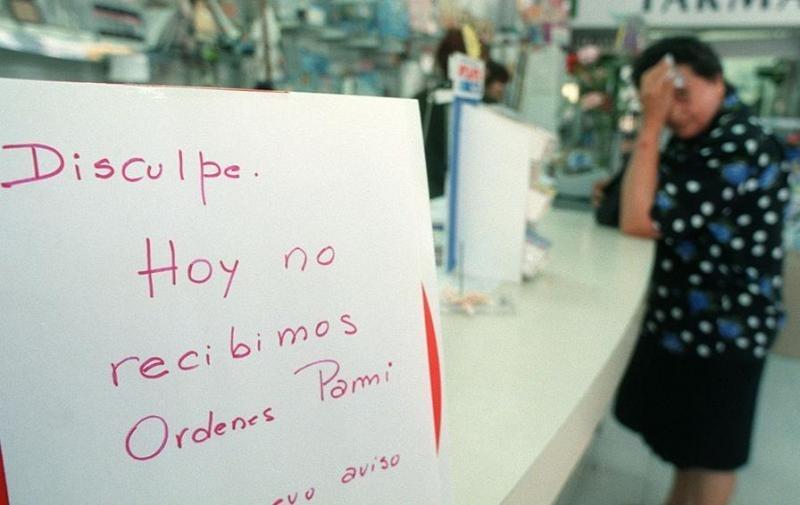 Disculpe.
Hoy no
recibimos
Ordenes Pami
aviso